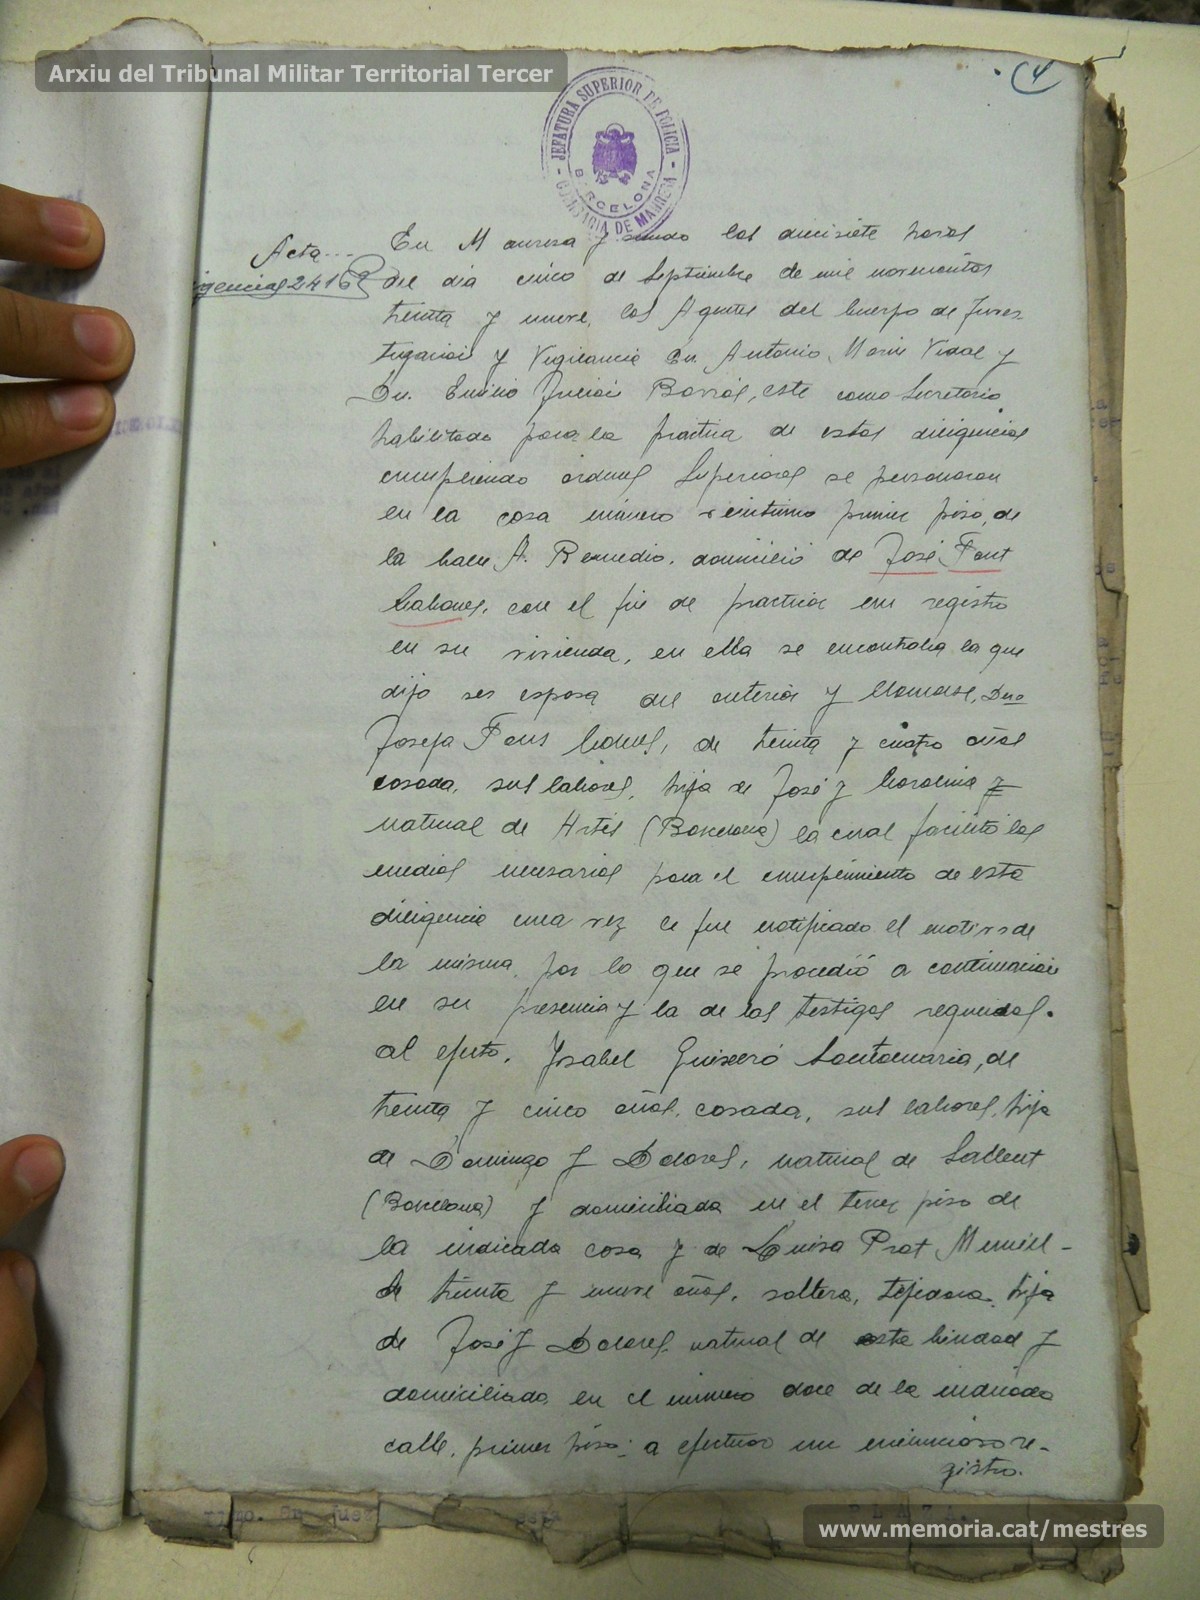 Arxiu del Tribunal Militar Territorial Tercer
(4
JEFATURA SUPERIOR DE POLICIA
BARCELONA
COMISARIA DE MANRESA
Acta...
En Manresa y siendo las diecisiete horas
del día cinco de Septiembre de mil novecientos
treinta y nueve, los Agentes del Cuerpo de Inves-
tigación y Vigilancia Dn. Antonio Marin Vidal y
Dn. Emilio Julián Borrás, este como Secretario
habilitado para la practica de estas diligencias
cumpliendo ordenes Superiores se personaron
en la casa número veintiuno primer piso, de
la Calle A. Remedio, domicilio de José Font
Cabanes, con el fin de practicar un registro
en su vivienda, en ella se encontraba la que
dijo ser esposa del anterior y llamarse, Dña
Josefa Fons, de treinta y cuatro años
casada, sus labores, hija de José y Carolina y
natural de Artés (Barcelona) la cual facilitó los
medios necesarios para el cumplimiento de esta
diligencia una vez le fue notificado el motivo de
la misma, por lo que se procedió a continuación
en su presencia y la de los testigos requeridos
al efecto, Ysabel Guixeró Santamaria, de
treinta y cinco años, casada, sus labores, hija
de Domingo y Dolores, natural de Sallent
(Barcelona) y domiciliada en el tercer piso de
la indicada casa y de Luisa Prat
de treinta y nueve años, soltera, tejedora, hija
de José y Dolores, natural de esta Ciudad y
domiciliada en el número doce de la indicada
calle, primer piso; a efectuar un minucioso re-
gistro.
www.memoria.cat/mestres